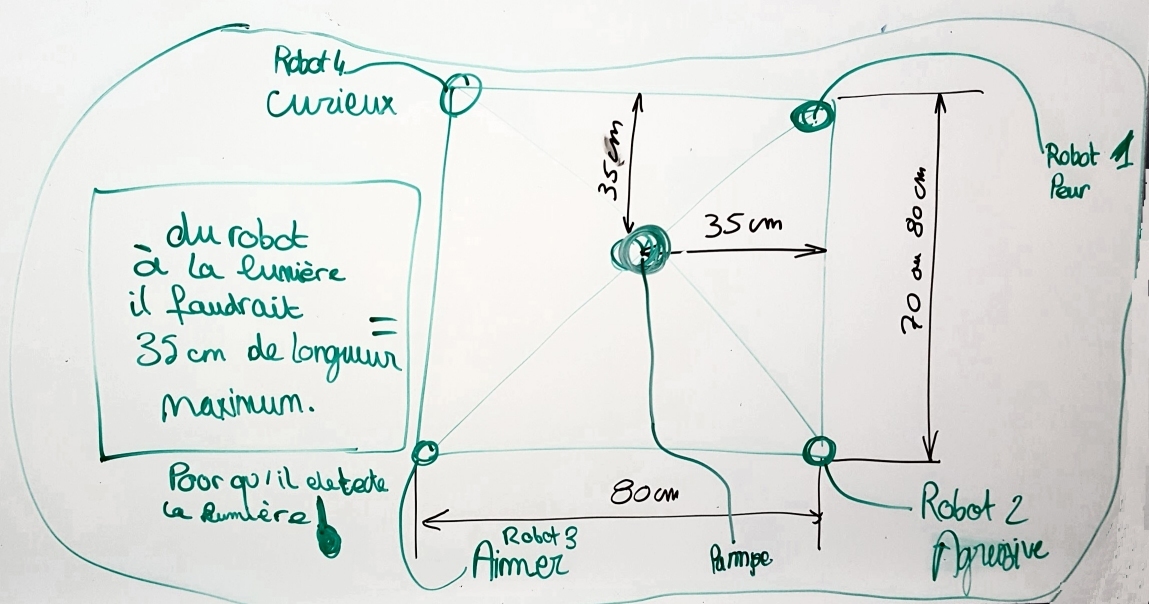 Robot 4
Curieux
Robot 1
Peur
35 cm
35 cm
70 ou 80 cm
du robot
à la lumière
il faudrait
35 cm de longueur =
maximum.
Pour qu'il detecte
la lumière !
80 cm
Robot 3
Aimer
Pampe
Robot 2
Agressive